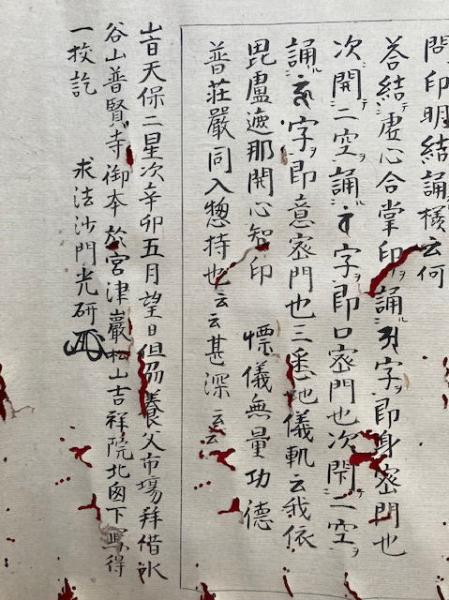 問印明結誦様云何
答結虚心合掌印誦字即身密門也
次開二空誦字即口密門也次閇二空
誦字即意密門也三悉地儀軌云我依
毘盧遮那開心智印 標儀無量功德
普莊嚴同入惣持也云云甚深云云
旹天保二星次辛卯五月望日但州養父市場拜借氷
谷山普賢寺御本於宮津巖松山吉祥院北囱下寫得
一挍訖 求法沙門光研